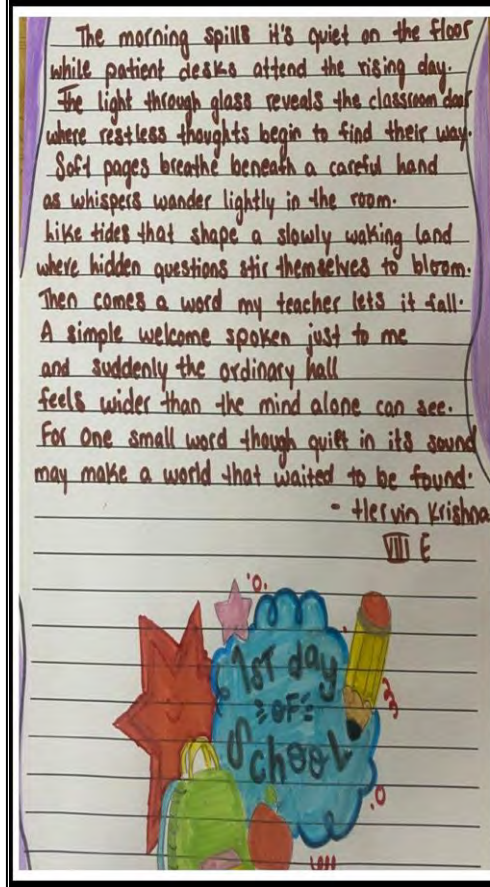 The morning spills it's quiet on the floor
while patient desks attend the rising day.
The light through glass reveals the classroom door
where restless thoughts begin to find their way.
Soft pages breathe beneath a careful hand
as whispers wander lightly in the room.
Like tides that shape a slowly waking land
where hidden questions stir themselves to bloom.
Then comes a word my teacher lets it fall.
A simple welcome spoken just to me
and suddenly the ordinary hall
feels wider than the mind alone can see.
For one small word though quiet in its sound
may make a world that waited to be found.
- Hervin Krishna
VIII E
1ST day
OF
School